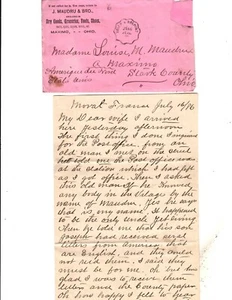 J. MAUDRU & BRO.,
Dry Goods, Groceries, Boots, Shoes,
MAXIMO, OHIO.
Madame Louise M. Maudru
Maximo
Amerique du Nord Stark County
Etats Unis Ohio
France July
My Dear wife I arrived
here yesterday afternoon
The first thing I done I inquire
for the Post office, from an
old man I met on the
told me the Post office was
at the station which I had left
as I got off. Then I asked
this old man if he knowed
any body in the village by the
name of Maudru. Yes he say
that is my name. It happened
to be the only uncle yet living
Then he told me that his son
Joseph had received
letters from America that
are English, and they could
not read them. I said they
must be for me. Oh how
glad I was to receive them
letters and the County paper
Oh how happy I felt to hear